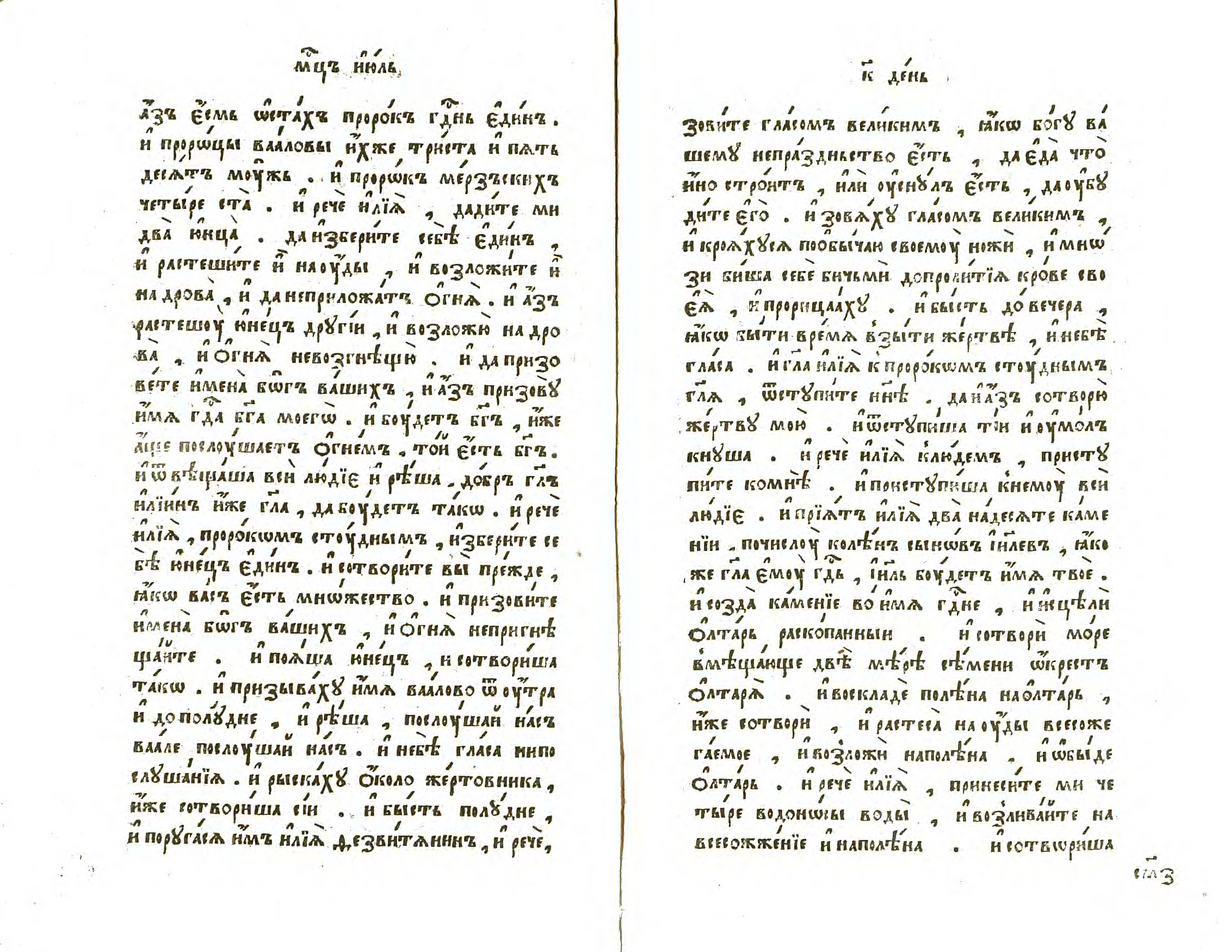 мⷭ҇цъ і҆ю́ль
а҆́зъ є҆́смь ѡ҆ста́хъ проро́къ гдⷭ҇нь є҆ди́нъ .
и҆ проро́цы ваа́ловы и҆́хже три́ста и҆ пѧ́ть
десѧ́тъ моу́жь . и҆ проро́къ ме́рзъскихъ
четы́ре ста̀ . и҆ речѐ и҆лїѧ̀ , дади́те ми
два̀ ю҆нца̀ . да и҆збери́те себѣ̀ є҆ди́нъ ,
и҆ растеши́те и҆̀ на оу҆́ды , и҆ возложи́те и҆̀
на дрова̀ , и҆ да неприложа́тъ ѻ҆гнѧ̀ . и҆ а҆́зъ
растешоу̀ ю҆не́цъ дрꙋгі́и , и҆ возложю̀ на дро
ва̀ , и҆ ѻ҆гнѧ̀ невозгнѣщю̀ . и҆ да призо
ве́те и҆мена̀ бѡ́гъ ва́шихъ , и҆ а҆́зъ призовꙋ̀
и҆́мѧ гдⷭ҇а бг҃а моегѡ̀ . и҆ боу́детъ бг҃ъ , и҆́же
а҆́ще послоу́шаетъ ѻ҆гне́мъ . то́и є҆́сть бг҃ъ .
и҆ ѿвѣща́ша всѝ лю́дїе и҆ рѣ́ша . до́бръ гл҃ъ
и҆лїи́нъ и҆́же гл҃а , да боу́детъ та́кѡ . и҆ речѐ
и҆лїѧ̀ , проро́кѡмъ стоу́днымъ , и҆збери́те се
бѣ̀ ю҆не́цъ є҆ди́нъ . и҆ сотвори́те вы̀ пре́жде ,
ꙗ҆́кѡ ва́съ є҆́сть мно́жество . и҆ призови́те
и҆мена̀ бѡ́гъ ва́шихъ , и҆ ѻ҆гнѧ̀ непригнѣ
ща́ите . и҆ поѧ́ша ю҆не́цъ , и҆ сотвори́ша
та́кѡ . и҆ призыва́хꙋ и҆́мѧ ваа́лово ѿ оу҆́тра
и҆ до полꙋ́дне , и҆ рѣ́ша , послоу́шай на́съ
ваа́ле послоу́шай на́съ . и҆ небѣ̀ гла́са нипо
слꙋша́нїѧ . и҆ рыска́хꙋ ѻ҆́коло же́ртовника ,
и҆́же сотвори́ша сі́и . и҆ бы́сть полꙋ́дне ,
и҆ порꙋга́сѧ и҆̀мъ и҆лїѧ̀ ѳезви́тѧнинъ , и҆ речѐ ,
к҃ де́нь
зови́те гла́сомъ вели́кимъ , ꙗ҆́кѡ бо́гꙋ ва́
шемꙋ непра́здньство є҆́сть , да є҆да̀ что̀
и҆́но стро́итъ , и҆лѝ оу҆снꙋ́лъ є҆́сть , да оу҆бꙋ
ди́те є҆го̀ . и҆ зовѧ́хꙋ гла́сомъ вели́кимъ ,
и҆ кроѧ́хꙋсѧ пообы́чаю своемоу̀ ножѝ , и҆ мно́
зи би́ша себѐ бичьмѝ допроли́тїѧ кро́ве сво
є҆ѧ̀ , и҆ прорица́ахꙋ . и҆ бы́сть до ве́чера ,
ꙗ҆́кѡ бы́ти вре́мѧ взы́ти же́ртвѣ , и҆ небѣ̀
гла́са . и҆ гл҃а и҆лїѧ̀ к проро́кѡмъ стоу́днымъ
гл҃ѧ , ѿстꙋпи́те нн҃ѣ . да и҆ а҆́зъ сотворю̀
же́ртвꙋ мою̀ . и҆ ѿстꙋпи́ша ті́и и҆ оу҆мо́лъ
кнꙋша . и҆ речѐ и҆лїѧ̀ клю́демъ , пристꙋ
пи́те комнѣ̀ . и҆ пристꙋпи́ша кнемоу̀ всѝ
лю́дїе . и҆ прїѧ́тъ и҆лїѧ̀ два̀ на́десѧте ка́ме
нїи . почислоу̀ колѣ́нъ сыно́въ і҆и҃левъ , ꙗ҆́ко
же гл҃а є҆моу̀ гдⷭ҇ь , і҆и҃ль боу́детъ и҆́мѧ твоѐ .
и҆ созда̀ ка́менїе во и҆́мѧ гдⷭ҇не , и҆ и҆сцѣлѝ
ѻ҆лта́рь раско́панныи . и҆ сотворѝ мо́ре
вмѣща́юще двѣ̀ мѣ́рѣ сѣ́мени ѡ҆́крестъ
ѻ҆лтарѧ̀ . и҆ воскладѐ полѣ́на на ѻ҆лта́рь ,
и҆́же сотворѝ , и҆ растеса̀ на оу҆́ды всесоже
га́емое , и҆ возложѝ на полѣ́на . и҆ ѡ҆бы́де
ѻ҆лта́рь . и҆ речѐ и҆лїѧ̀ , принеси́те ми че
ты́ре водоно́сы воды̀ , и҆ возлива́йте на
всесожже́нїе и҆ на полѣ́на . и҆ сотвори́ша